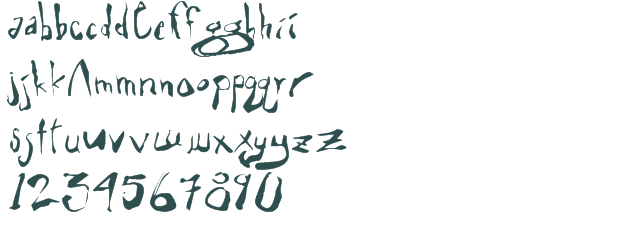 aabbccddeeffgghhii
jjkkllmmnnooppqqrr
ssttuuvvwwxxyyzz
1234567890